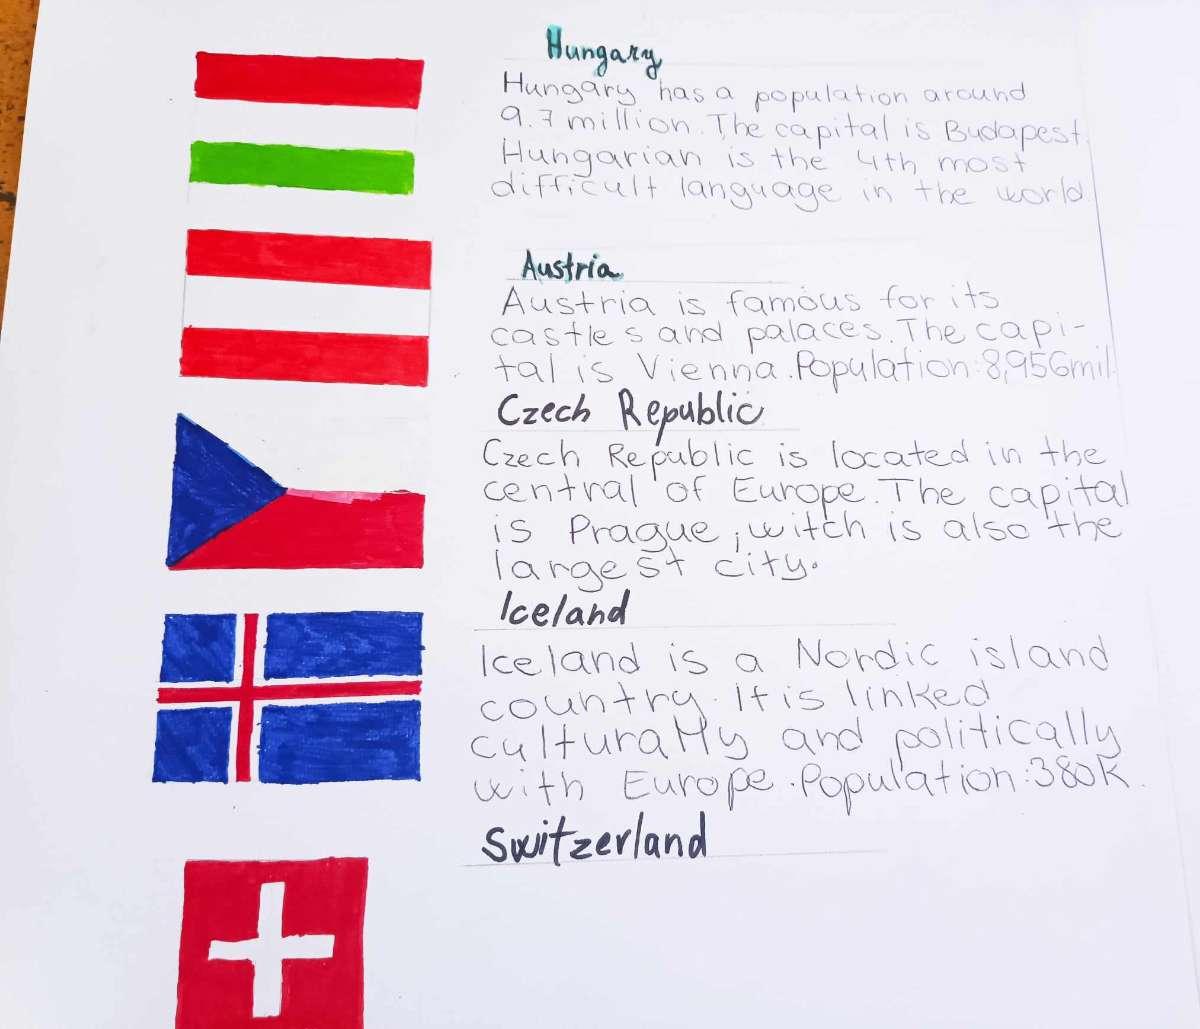 Hungary
Hungary has a population around
9.7 million. The capital is Budapest.
Hungarian is the 4th most
difficult language in the world
Austria
Austria is famous for its
castles and palaces. The capi-
tal is Vienna. Population: 8,956mil.
Czech Republic
Czech Republic is located in the
central of Europe. The capital
is Prague, witch is also the
largest city.
Iceland
Iceland is a Nordic island
country. It is linked
culturally and politically
with Europe. Population: 380K.
Switzerland